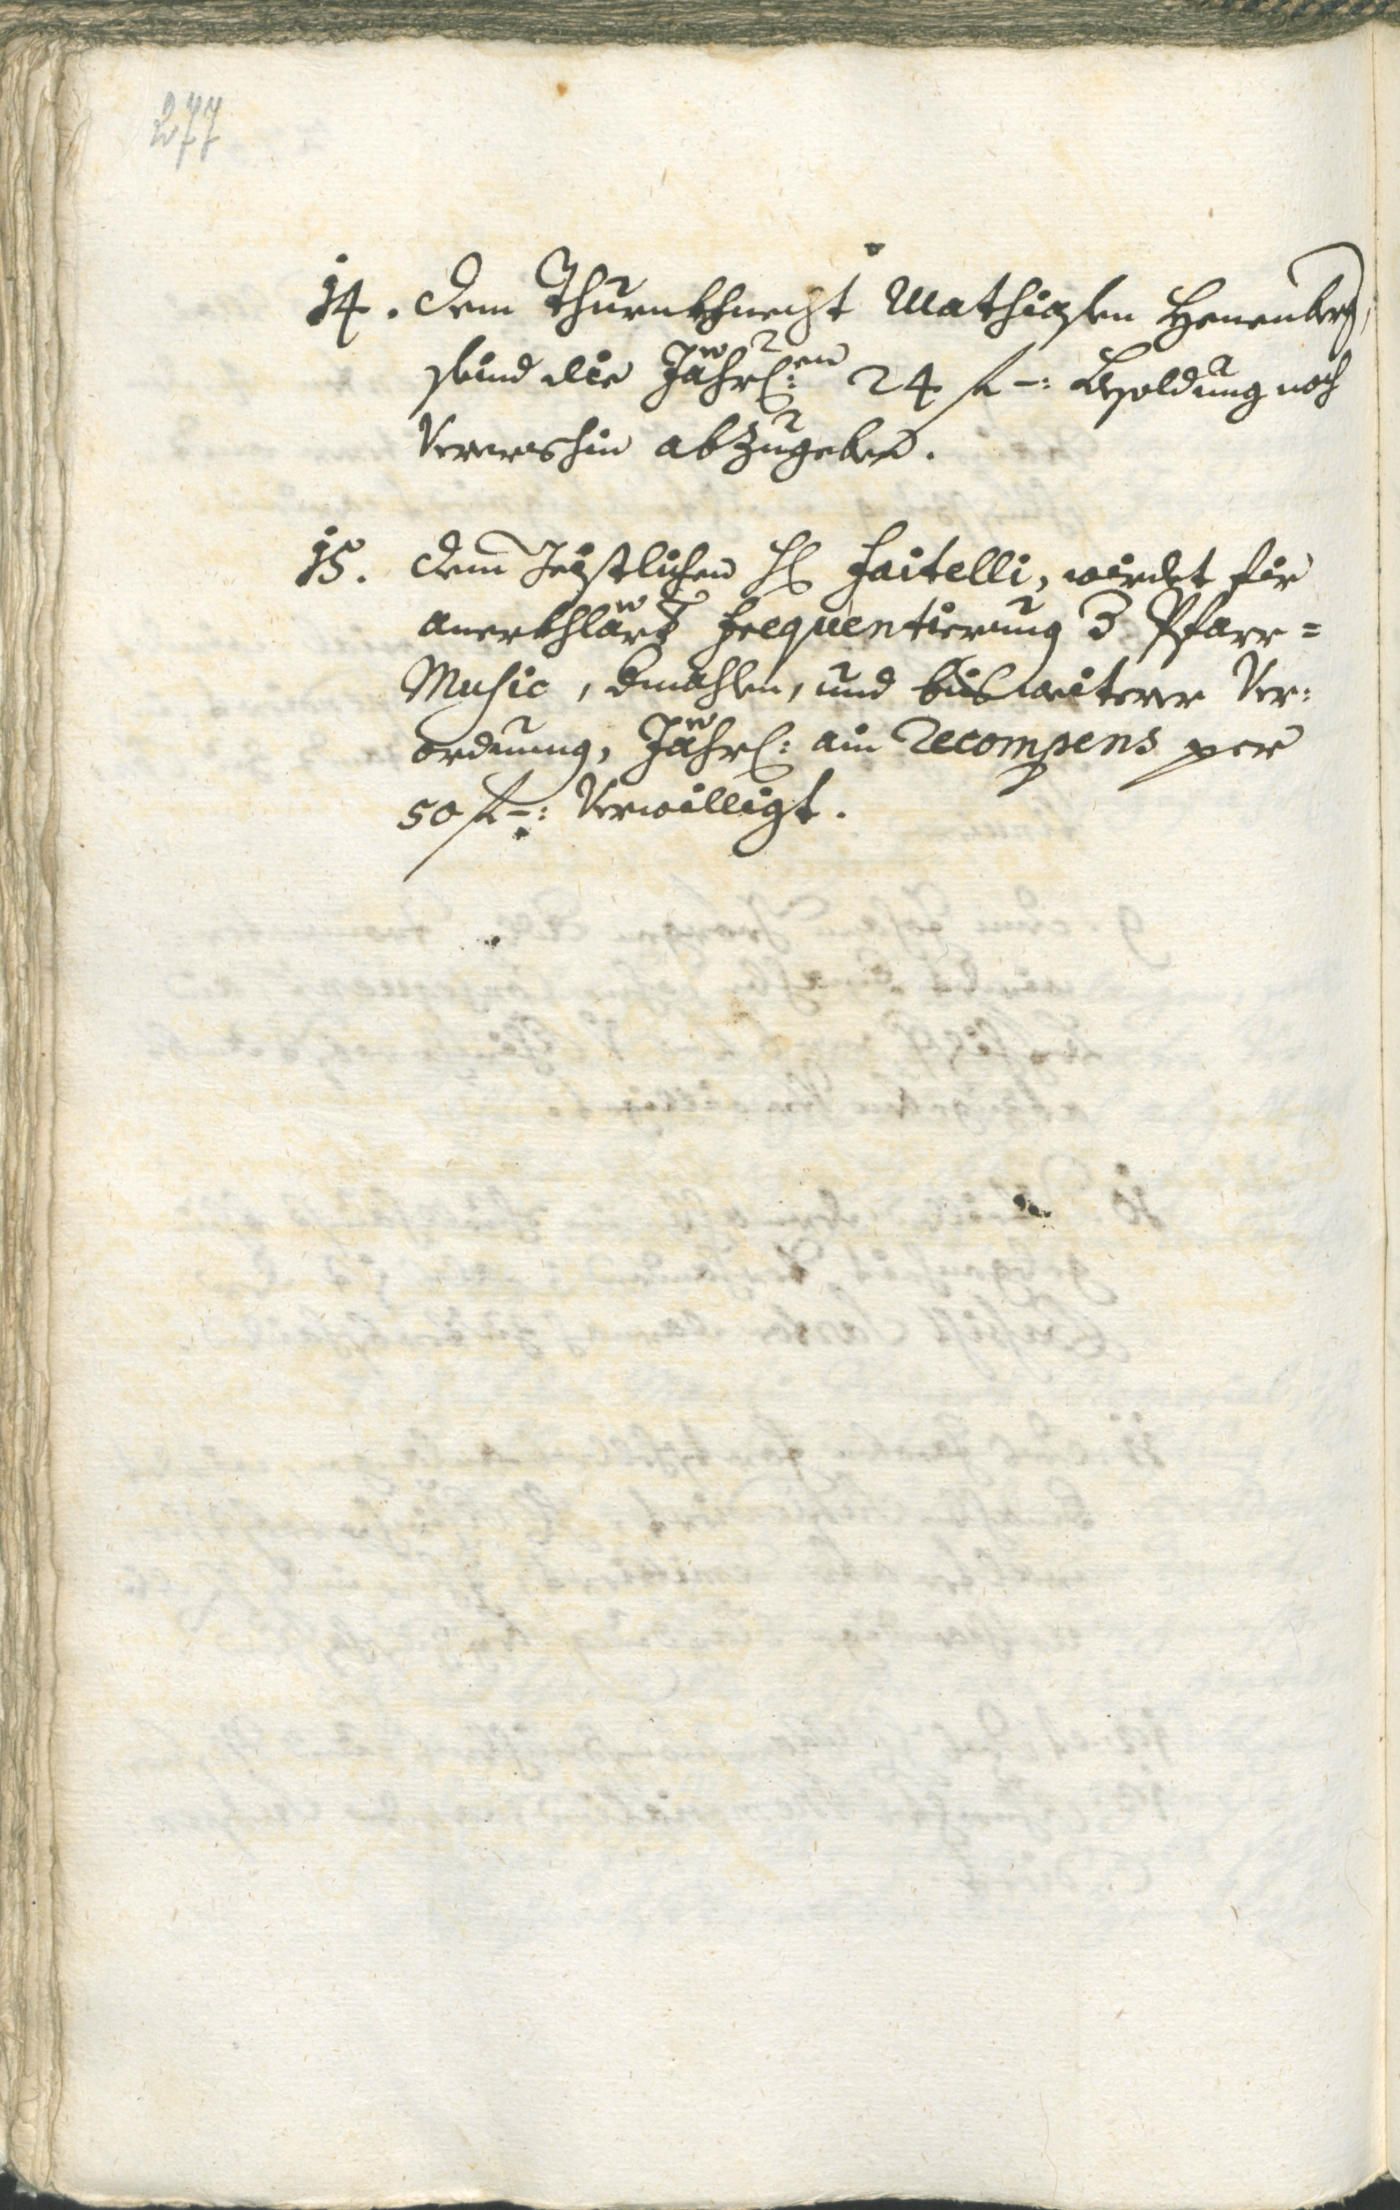 277
14. dem Thurnkhnecht Mathiaßen Henenberg,
seind die Jährl:en 24 fl -: Besoldung noch
Verershin abzugeben.
15. dem Geistlichen H: Faitelli, wirdet fir
anerkhlärte frequentierung d Pfarr=
Music, dmahlen, und bis weiterer Ver:
ordnung, Jährl: ain Recompens per
50 fl -: Verwilligt.